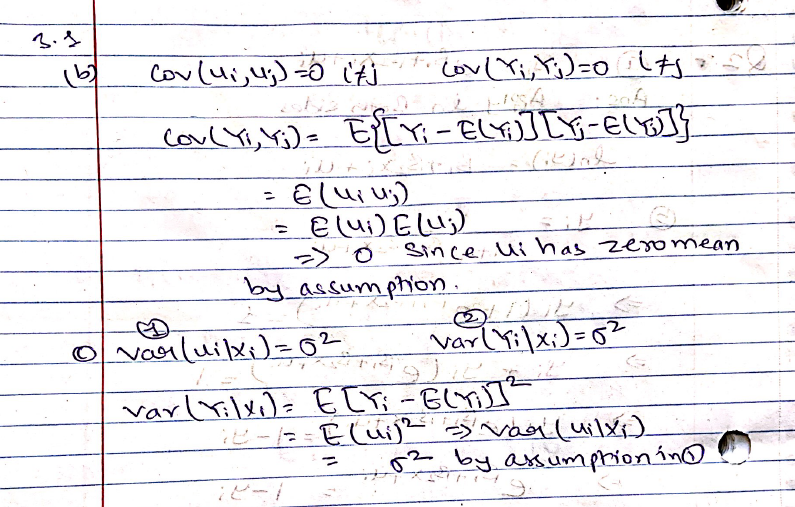 3.1
(b) cov(ui,uj)=0 i≠j cov(Yi,Yj)=0 i≠j
cov(Yi,Yj) = E{[Yi - E(Yi)][Yj-E(Yj)]}
= E(ui uj)
= E(ui) E(uj)
=> 0 Since, ui has zero mean
by assumption.
① ②
(c) var(ui|xi) = σ² var(Yi|xi) = σ²
var(Yi|xi) = E[Yi - E(Yi)]²
= E(ui)² => var(ui|xi)
= σ² by assumption in ①